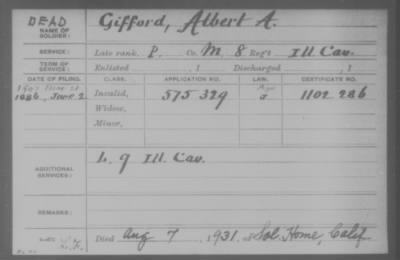 DEAD
NAME OF SOLDIER:
Gifford, Albert A.
SERVICE:
Late rank, P. Co. M, 8 Reg't Ill. Cav.
TERM OF SERVICE:
Enlisted , 1 Discharged , 1
DATE OF FILING. CLASS. APPLICATION NO. LAW. CERTIFICATE NO.
1886, June 2 Invalid, 575 329 1102 286
Widow,
Minor,
ADDITIONAL SERVICES:
L. 9 Ill. Cav.
REMARKS:
Died Aug 7, 1931, at Sol. Home, Calif